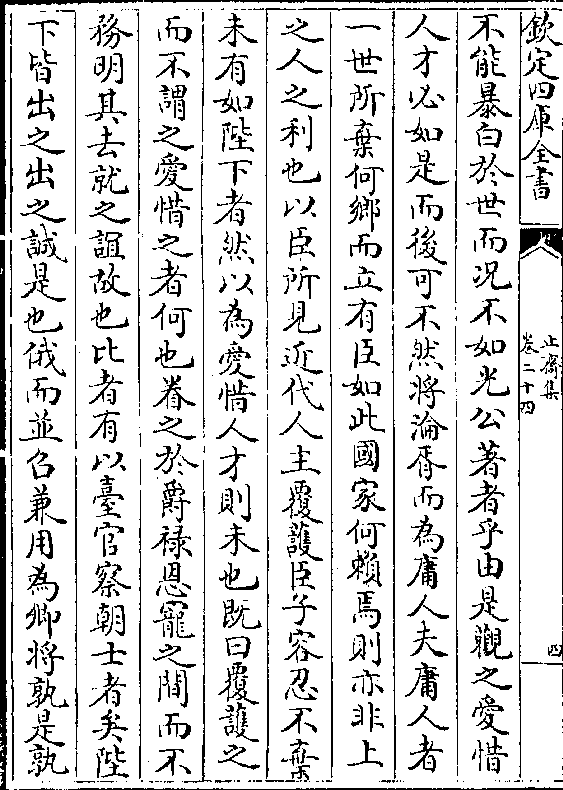 欽定四庫全書
止齋集
卷二十四
四
不能暴白於世而况不如光公著者乎由是觀之愛惜
人才必如是而後可不然將淪胥而為庸人夫庸人者
一世所棄何鄉而立有臣如此國家何賴焉則亦非上
之人之利也以臣所見近代人主覆護臣子容忍不棄
未有如陛下者然以為愛惜人才則未也既曰覆護之
而不謂之愛惜之者何也眷之於爵禄恩寵之間而不
務明其去就之誼故也比者有以臺官察朝士者矣陛
下皆出之出之誠是也俄而並召兼用為卿將孰是孰